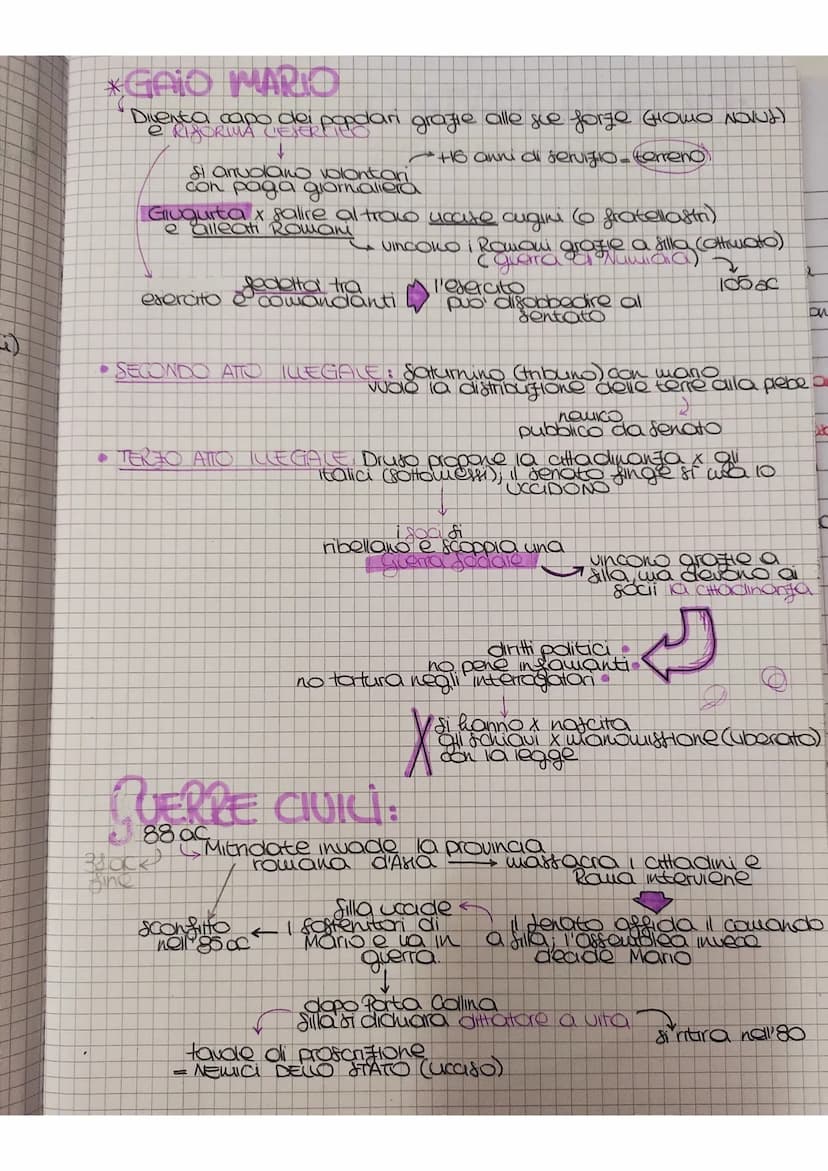 *GAIO MARIO
Diventa capo dei popolari grazie alle sue forze (HOMO NOVUS)
e RIFORMA L'ESERCITO
→ +16 anni di servizio = terreno
si arruolano volontari
con paga giornaliera
Giugurta x salire al trono uccise cugini (o fratellastri)
e alleati Romani
→ vincono i Romani grazie a Silla (ottimato)
(guerra di Numidia)
105 ac
fedeltà tra
esercito e comandanti
l'esercito
può disobbedire al
sentato
• SECONDO ATTO ILLEGALE: Saturnino (tribuno) con mario
vuole la distribuzione delle terre alla plebe
nemico
pubblico da senato
• TERZO ATTO ILLEGALE: Druso propone la cittadinanza x gli
italici (sottomessi); il senato finge sì ma lo
UCCIDONO
i soci si
ribellano e scoppia una
guerra sociale
vincono grazie a
Silla, ma devono ai
socii la cittadinanza
diritti politici •
no pene infamanti •
no tortura negli interrogatori •
si hanno x nascita
gli schiavi x manomissione (liberato)
con la legge
GUERRE CIVILI:
88 ac
→ Mitridate invade la provincia
romana d'Asia → massacra i cittadini e
Roma interviene
31 ac
fine
il senato affida il comando
a Silla; l'assemblea invece
decide Mario
Silla uccide
i sostenitori di
Mario e va in
guerra.
sconfitto
nell'85 ac
dopo Porta Collina
Silla si dichiara dittatore a vita
si ritira nell'80
tavole di proscrizione
= NEMICI DELLO STATO (ucciso)